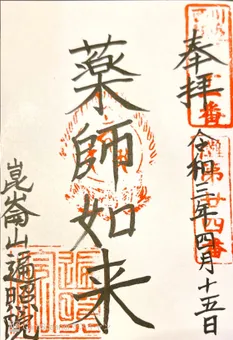 奉拝
令和三年四月十五日
薬師如来
崑崙山遍照院